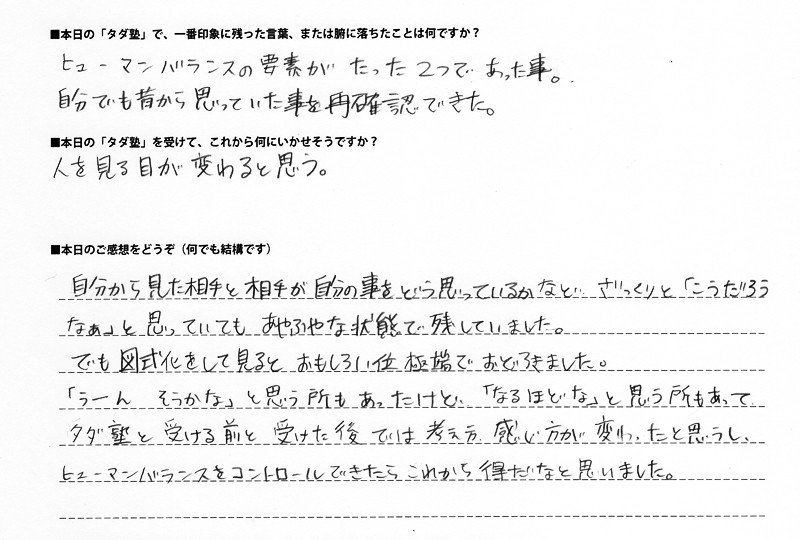 ■本日の「タダ塾」で、一番印象に残った言葉、または腑に落ちたことは何ですか？
ヒューマンバランスの要素が たった2つであった事。
自分でも昔から思っていた事を再確認できた。
■本日の「タダ塾」を受けて、これから何にいかせそうですか？
人を見る目が変わると思う。
■本日のご感想をどうぞ（何でも結構です）
自分から見た相手と相手が自分の事をどう思っているかなど ざっくりと「こうだろう
なぁ」と思っていても あやふやな状態で残していました。
でも図式化をして見ると おもしろい位極端でおどろきました。
「うーん そうかな」と思う所もあったけど、「なるほどな」と思う所もあって
タダ塾と受ける前と受けた後では考え方 感じ方が変わったと思うし、
ヒューマンバランスをコントロールできたらこれから得だなと思いました。